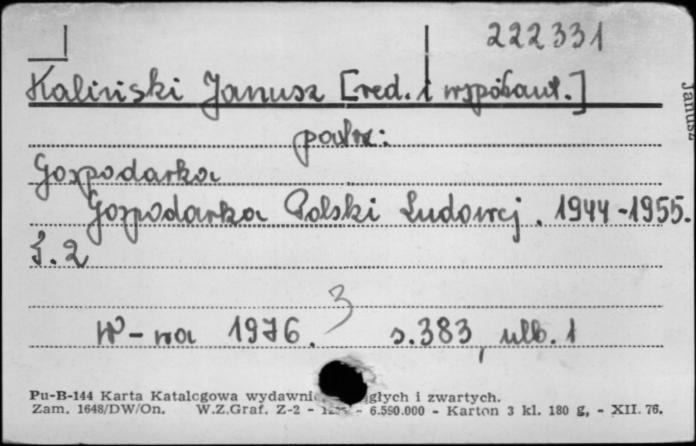 222331
Kaliński Janusz [red. i współaut.]
Janusz
patrz:
Gospodarka
Gospodarka Polski Ludowej. 1944-1955.
T. 2
3
W-wa 1976. s. 383, nlb. 1
Pu-B-144 Karta Katalogowa wydawnictw ciągłych i zwartych.
Zam. 1648/DW/On. W.Z.Graf. Z-2 - 6.590.000 - Karton 3 kl. 180 g, - XII. 76.